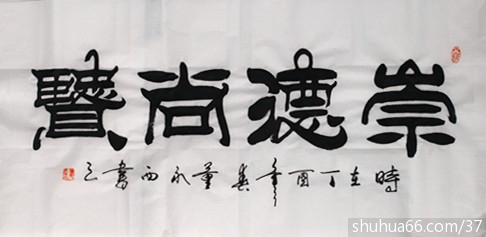 崇德尚賢
時在丁酉年春董永西書之
shuhua66.com/37